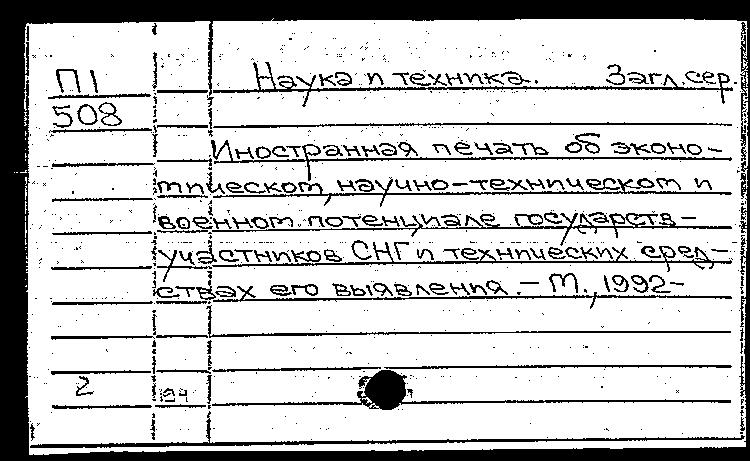 П1 Наука и техника. Загл. сер.
508
Иностранная печать об эконо-
мическом, научно-техническом и
военном потенциале государств-
участников СНГ и технических сред-
ствах его выявления. – М., 1992-
2